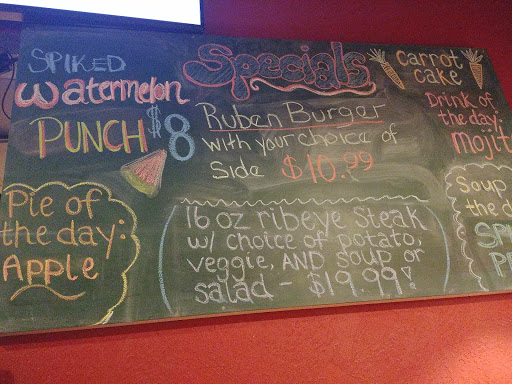 SPIKED
Watermelon
PUNCH $8
Pie of
the day:
Apple
Specials
Ruben Burger
with your choice of
side $10.99
16 oz ribeye steak
w/ choice of potato,
veggie, AND soup or
salad - $19.99!
carrot
cake
Drink of
the day:
mojit
Soup
the d
SP
P